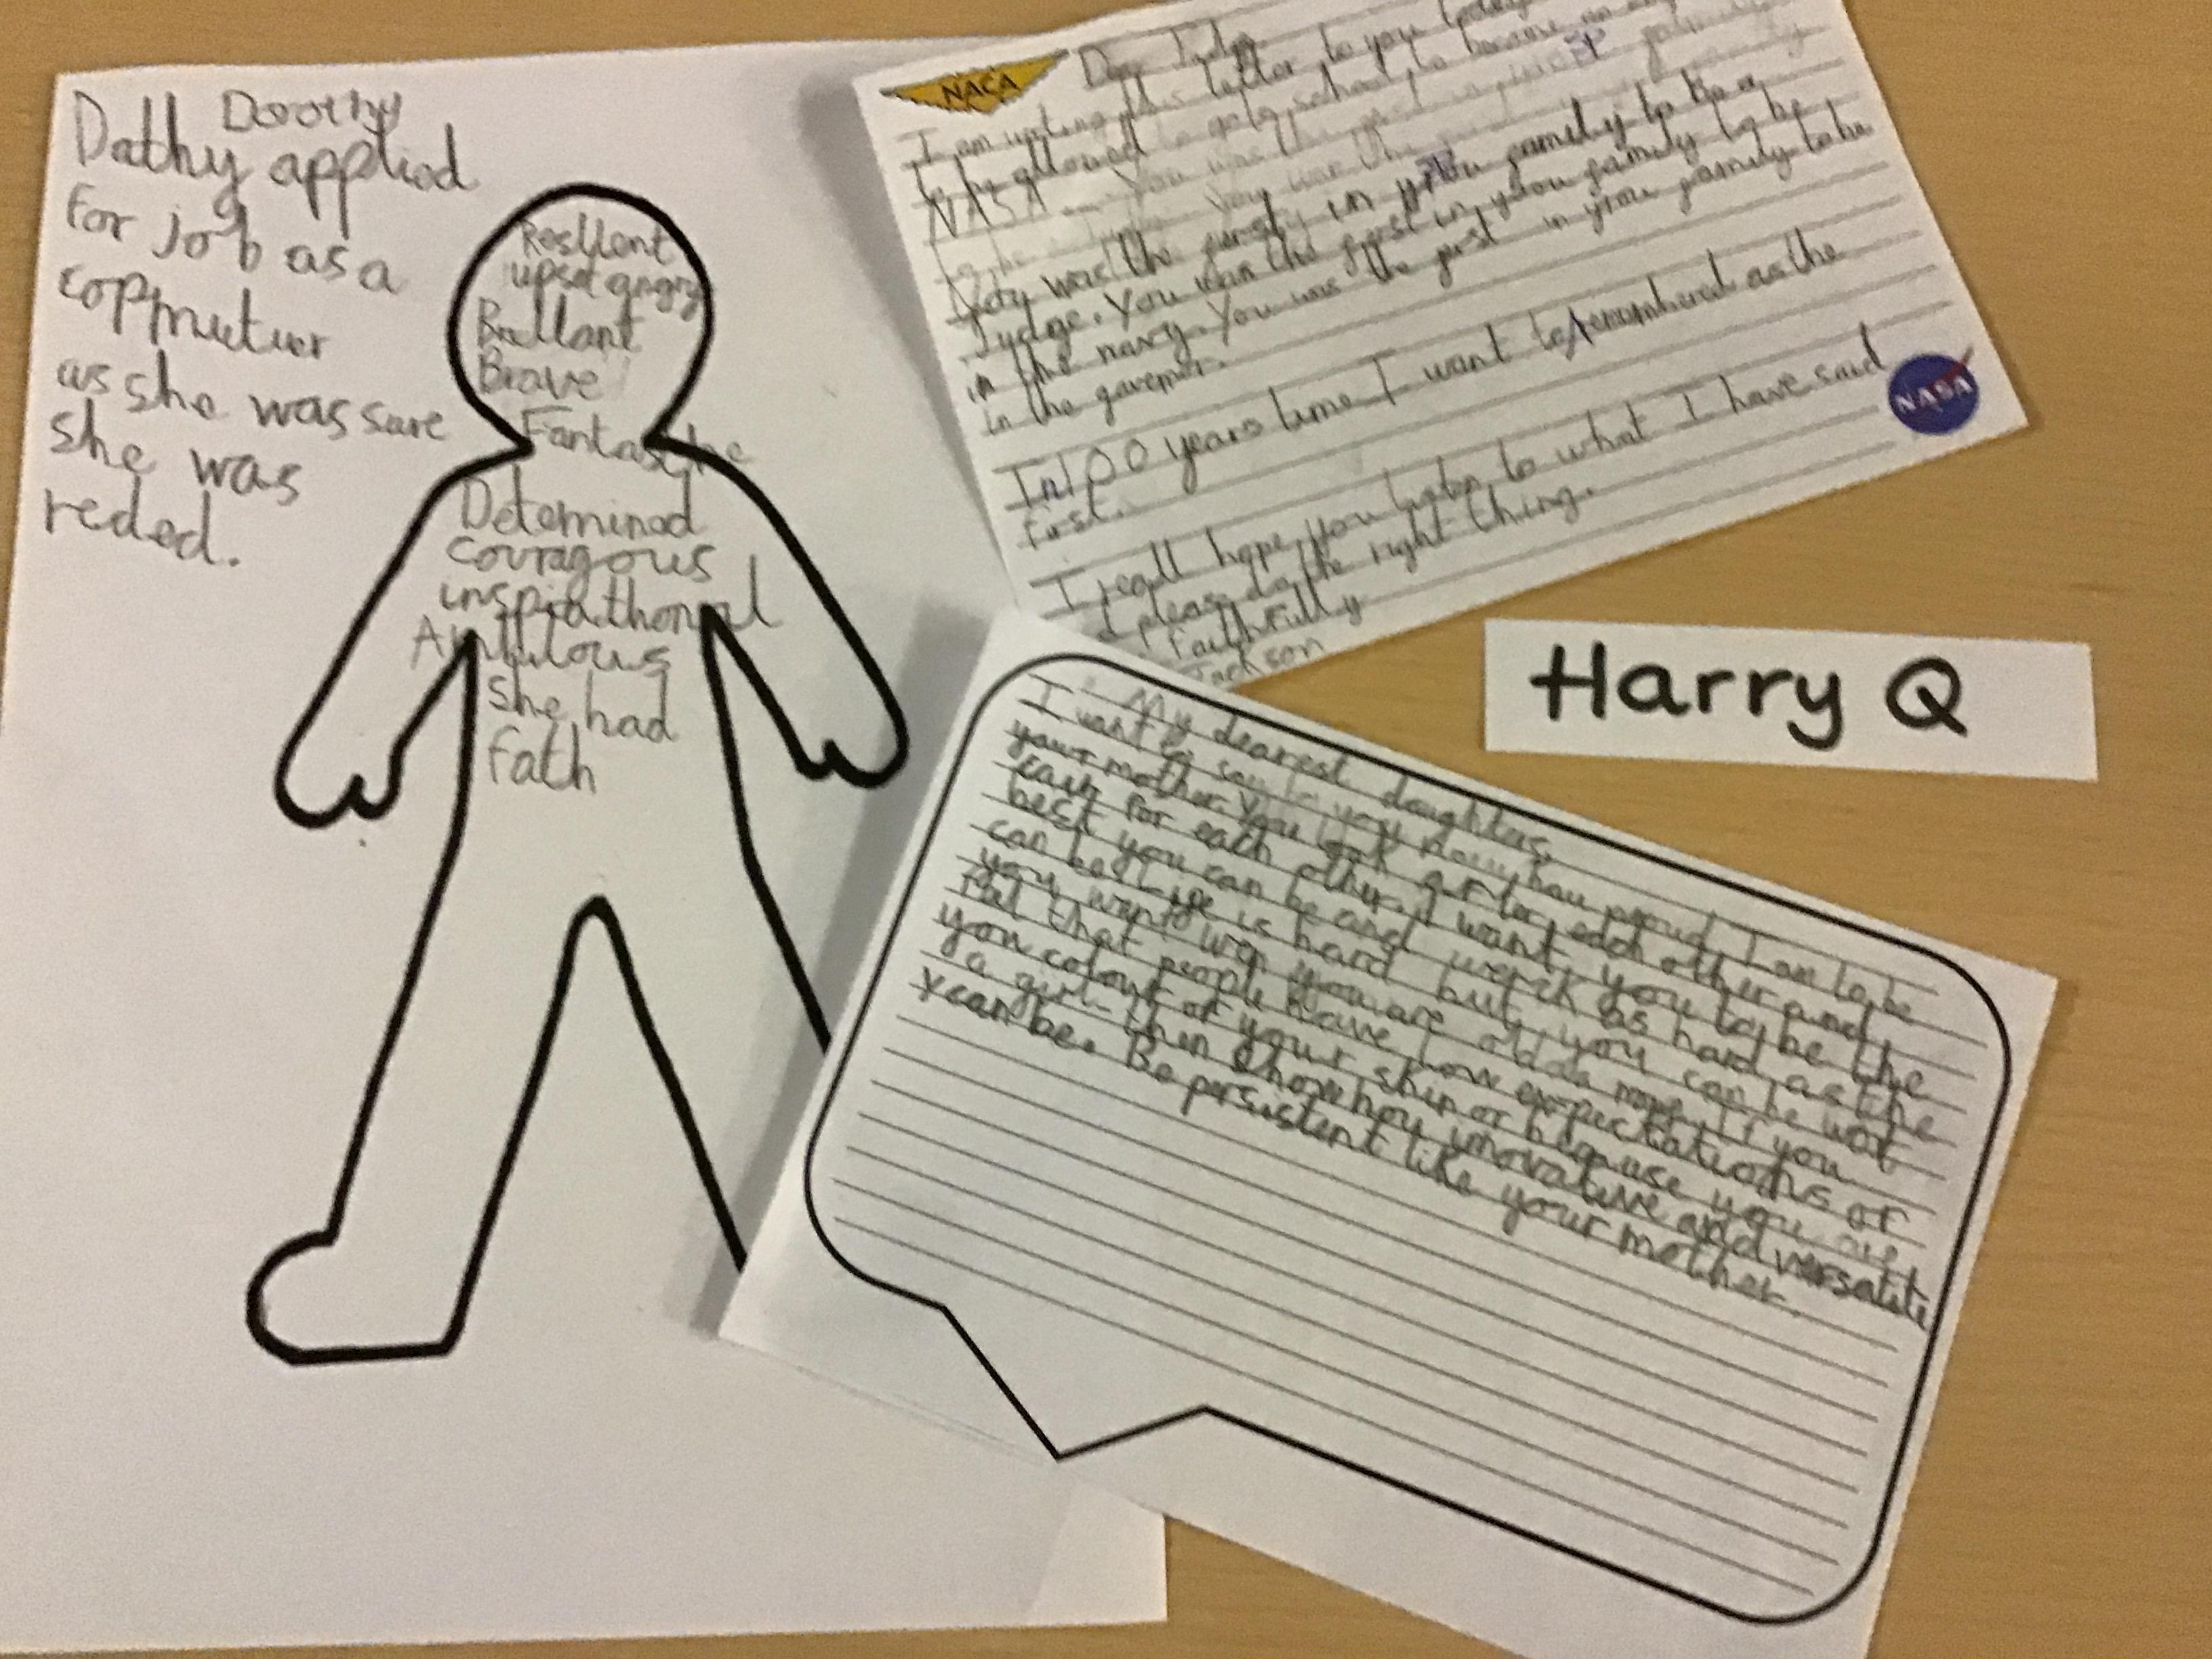 Dorothy
Dathy applied
for job as a
copmutuer
as she was sure
she was
reded.
Resllent
upset angry
Brellant
Brave
Fantastic
Determinod
couragous
inspirathonal
Ambitous
She had
fath
NACA
Dear Judge
I am writing this letter to you today
to be allowed to go to school to become an
NASA
You was the first in you family to be a
Judge. You was the first in you family to be
in the navy. You was the first in you family to be
in the
In 100 years time I want to remembered as the
first.
I reall hope you listen to what I have said
please do the right thing.
Faithfully
Jackson
NASA
Harry Q
My dearest daughters,
I want to say to you how proud I am to be
your mother. You look after each other and
care for each other. I want you to be the
best you can be and work as hard as the
can be. Life is hard but you can be wat
you want to wen you are older. If you
fell that people have low expectations of
you colour of your skin or because you are
a girl - then show how inovative and versatile
you can be. Be persistent like your mother.